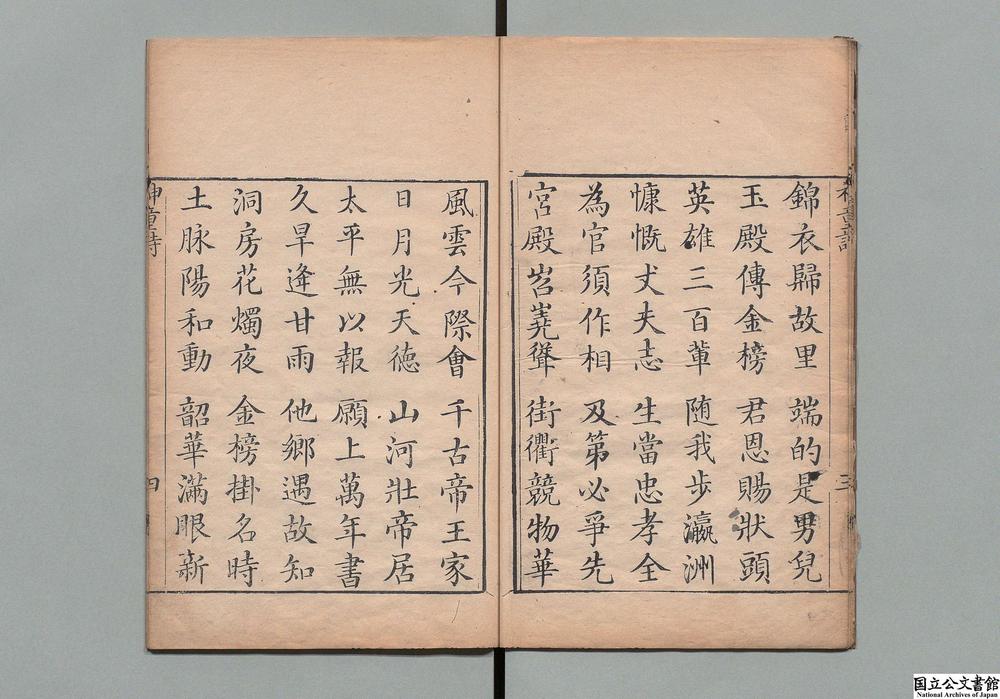 錦衣歸故里 端的是男兒
玉殿傳金榜 君恩賜狀頭
英雄三百輩 随我步瀛洲
慷慨丈夫志 生當忠孝全
為官須作相 及第必爭先
宮殿岧嶤聳 街衢競物華
風雲今際會 千古帝王家
日月光天徳 山河壯帝居
太平無以報 願上萬年書
久旱逢甘雨 他鄉遇故知
洞房花燭夜 金榜掛名時
土脉陽和動 韶華滿眼新
神童詩
四
三
国立公文書館
National Archives of Japan